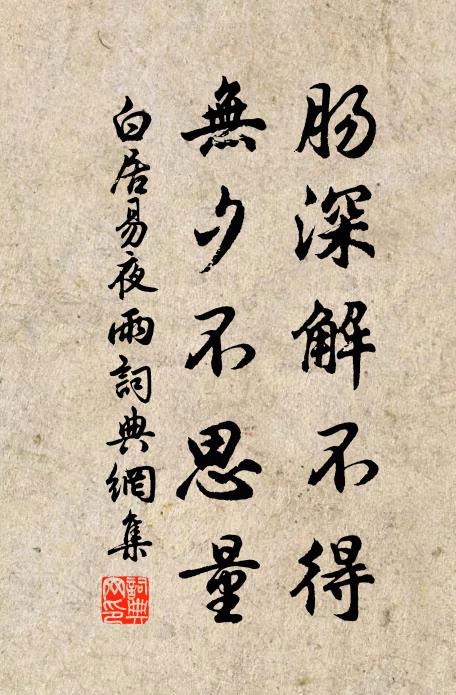 肠深解不得
無夕不思量
白居易夜雨詞典網集
詞典
网印